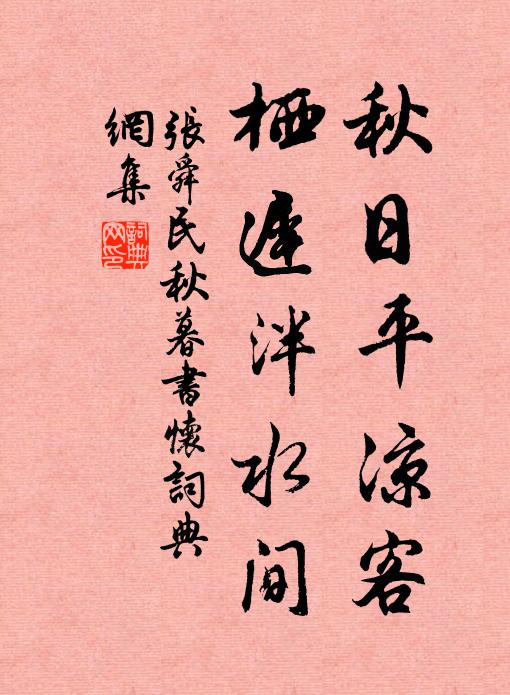 秋日平涼客
栖遲泮水间
張舜民秋暮書懷詞典
網集
詞典
网印